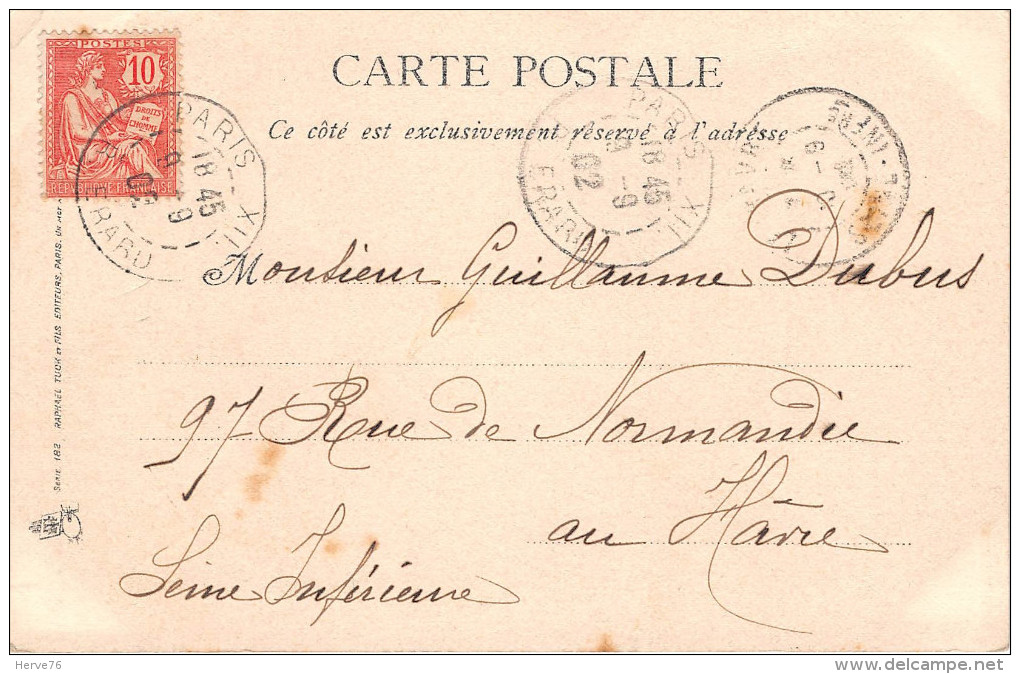 POSTES
10
DROITS
DE
L'HOMME
REPUBLIQUE FRANÇAISE
CARTE POSTALE
Ce côté est exclusivement réservé à l'adresse
PARIS XII
18 45
9 - 9
02
ERARD
PARIS XII
18 45
9 - 9
02
ERARD
Monsieur Guillaume Dubus
97 Rue de Normandie
au Hâvre
Seine Inférieure
Serie 182 RAPHAEL TUCK et FILS EDITEURS, PARIS.
Herve76
delcampe.net